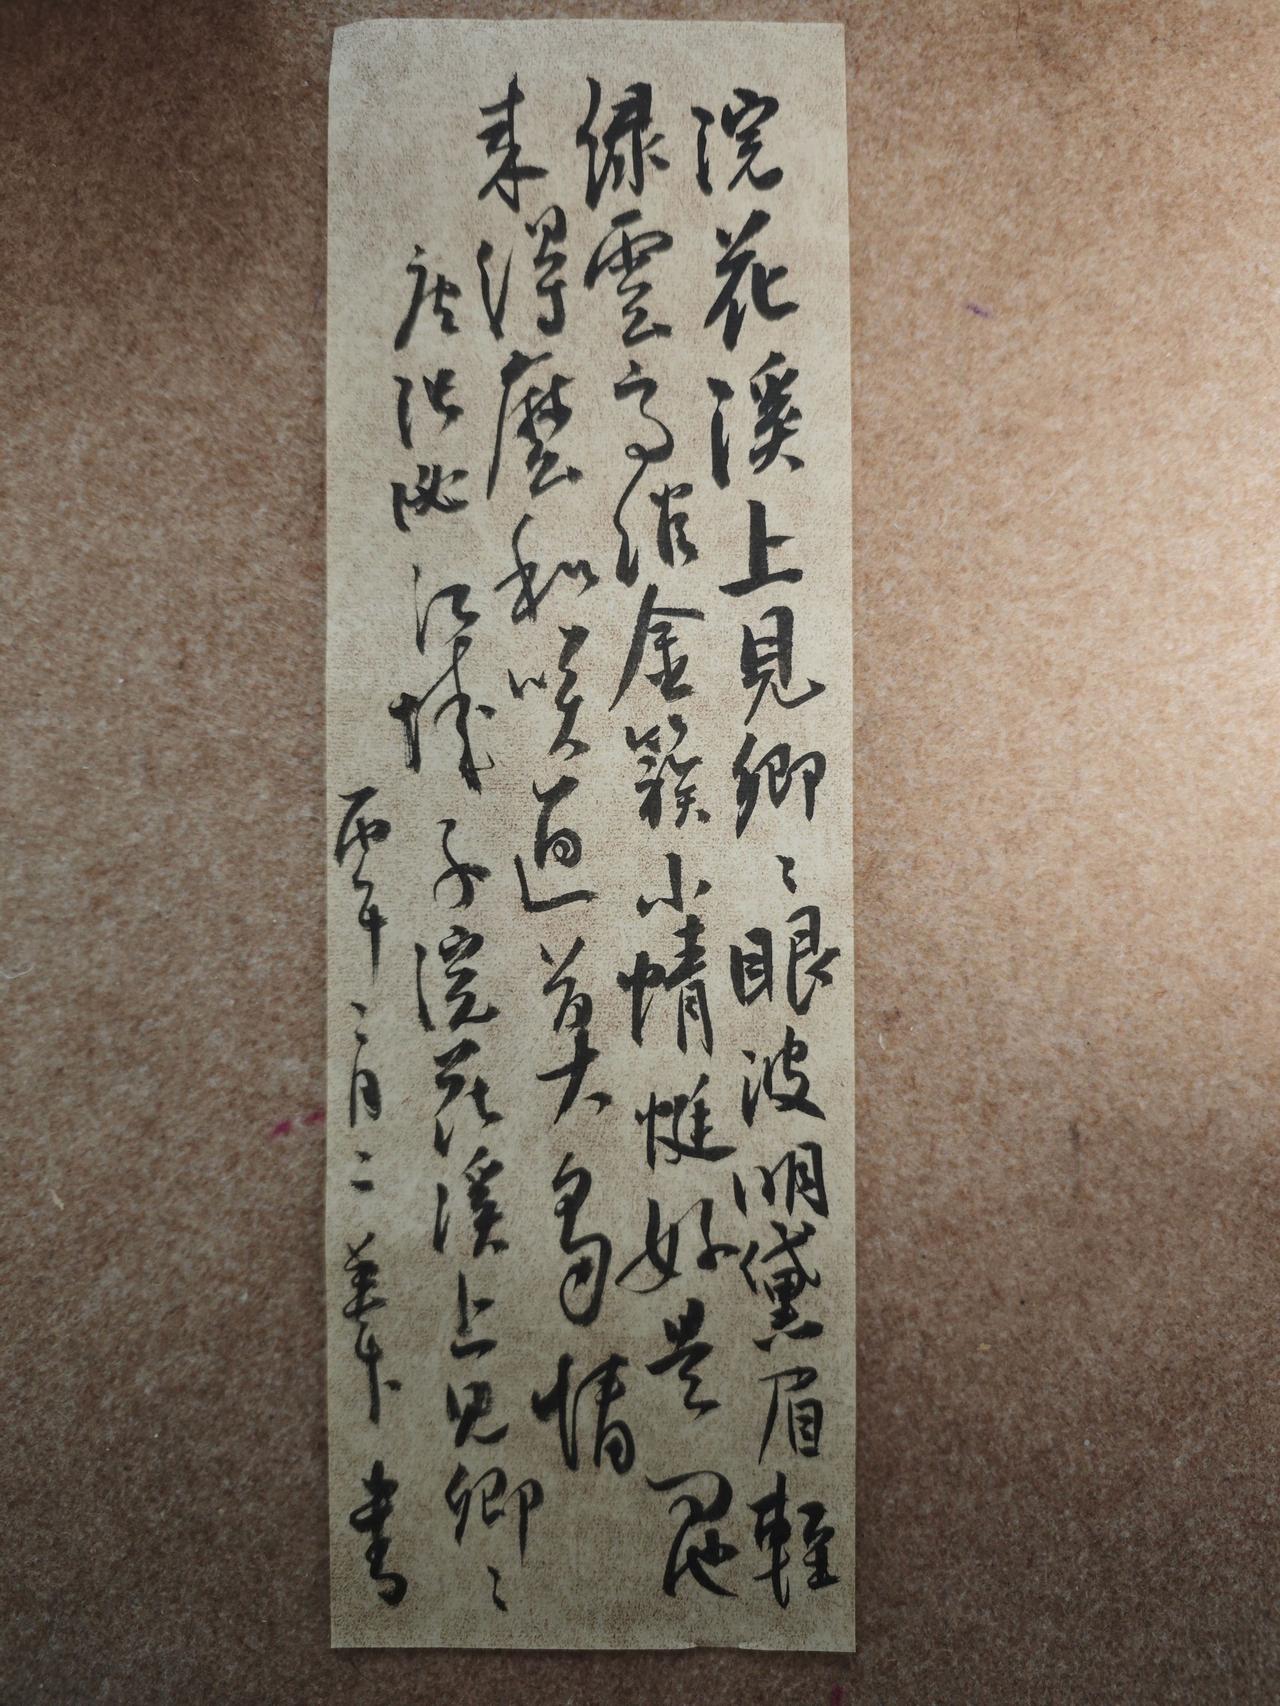 浣花溪上見卿〻眼波明黛眉輕
绿雲高綰金簇小蜻蜓好是問他
来得麽和笑道莫多情
唐張泌江城子浣花溪上見卿〻
丙午二月二 書